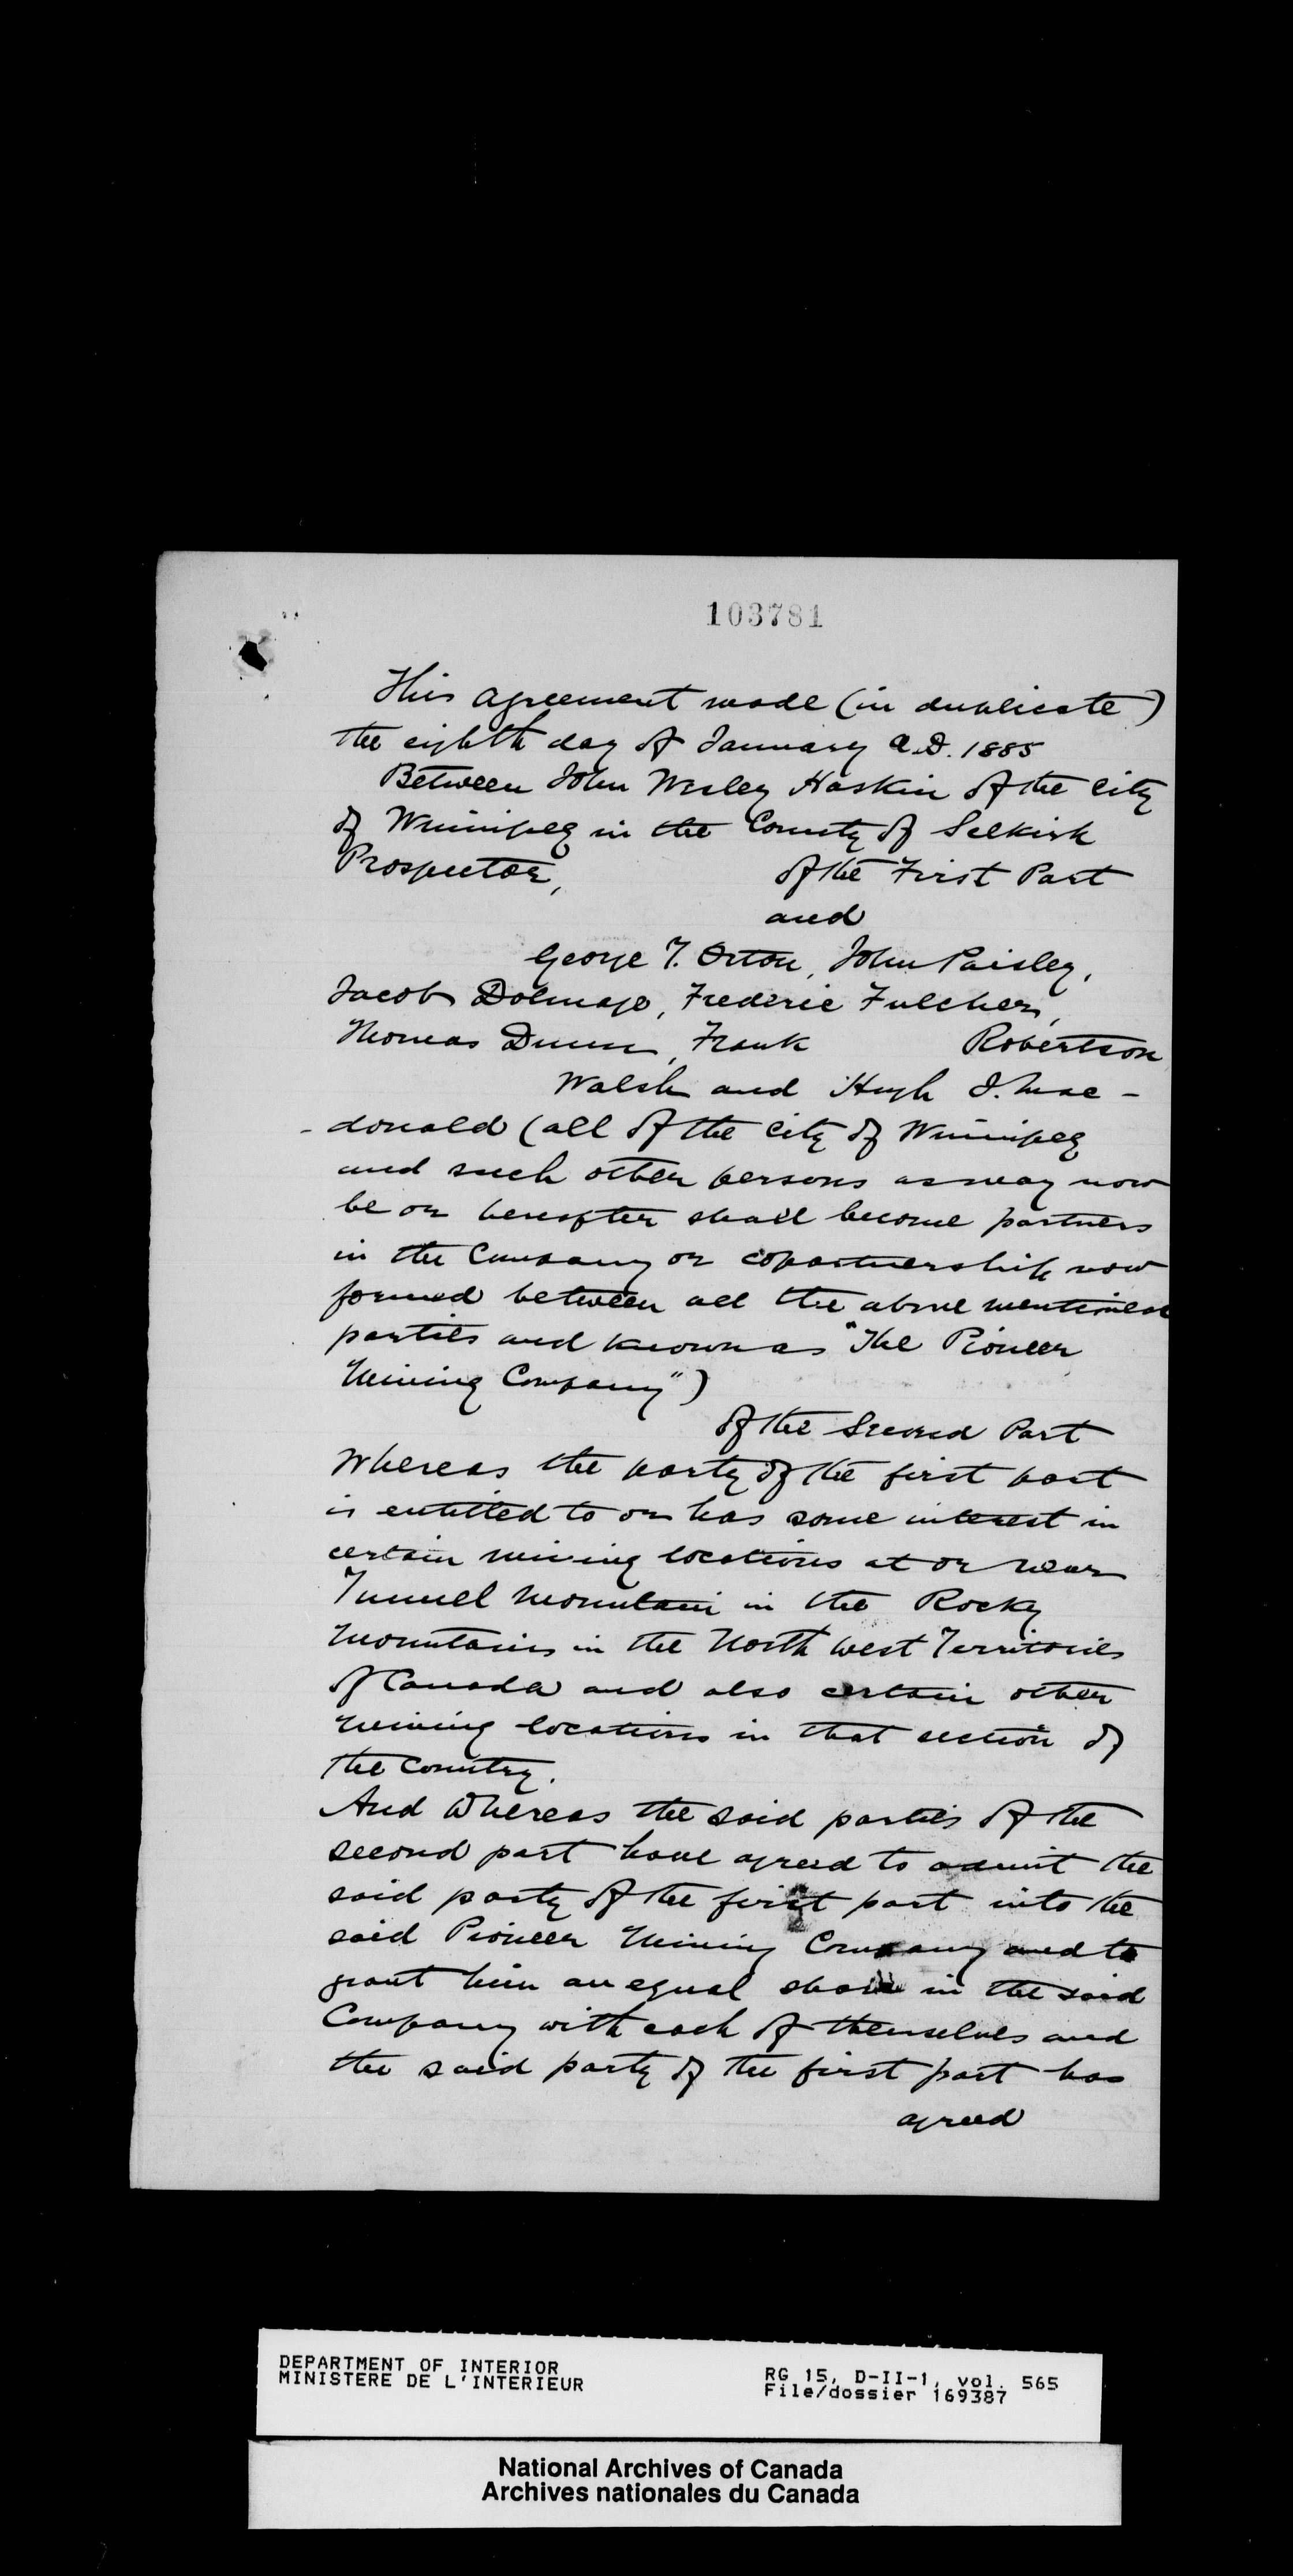 103781
This agreement made (in duplicate)
the eighth day of January A.D. 1885
Between John Wesley Haskin of the City
of Winnipeg in the County of Selkirk
Prospector, of the First Part
and
George T. Orton, John Paisley,
Jacob Dolmage, Frederic Fulcher,
Thomas Dunn, Frank Robertson
Walsh and Hugh J. Mac-
-donald (all of the City of Winnipeg
and such other persons as may now
be or hereafter shall become partners
in the Company or copartnership now
formed between all the above mentioned
parties and known as "The Pioneer
Mining Company")
of the Second Part
Whereas the party of the first part
is entitled to or has some interest in
certain mining locations at or near
Tunnel Mountain in the Rocky
Mountains in the North West Territories
of Canada and also certain other
mining locations in that section of
the Country.
And Whereas the said parties of the
second part have agreed to admit the
said party of the first part into the
said Pioneer Mining Company and to
grant him an equal share in the said
Company with each of themselves and
the said party of the first part has
agreed
DEPARTMENT OF INTERIOR
MINISTERE DE L'INTERIEUR
RG 15, D-II-1, vol. 565
File/dossier 169387
National Archives of Canada
Archives nationales du Canada